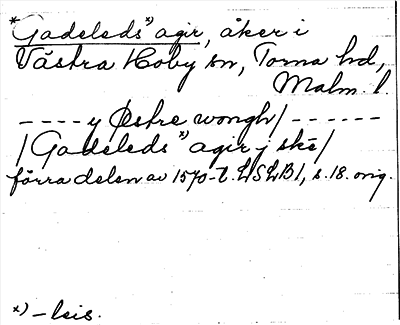 *Gadeleds*) agir, åker i
Västra Hoby sn, Torna hd,
Malm. l.
- - - - y Østre wongh/ - - - - - -
/Gadeleds*) agir j skē/
förra delen av 1570-t. LSLB1, s. 18. orig.
*) - leis.